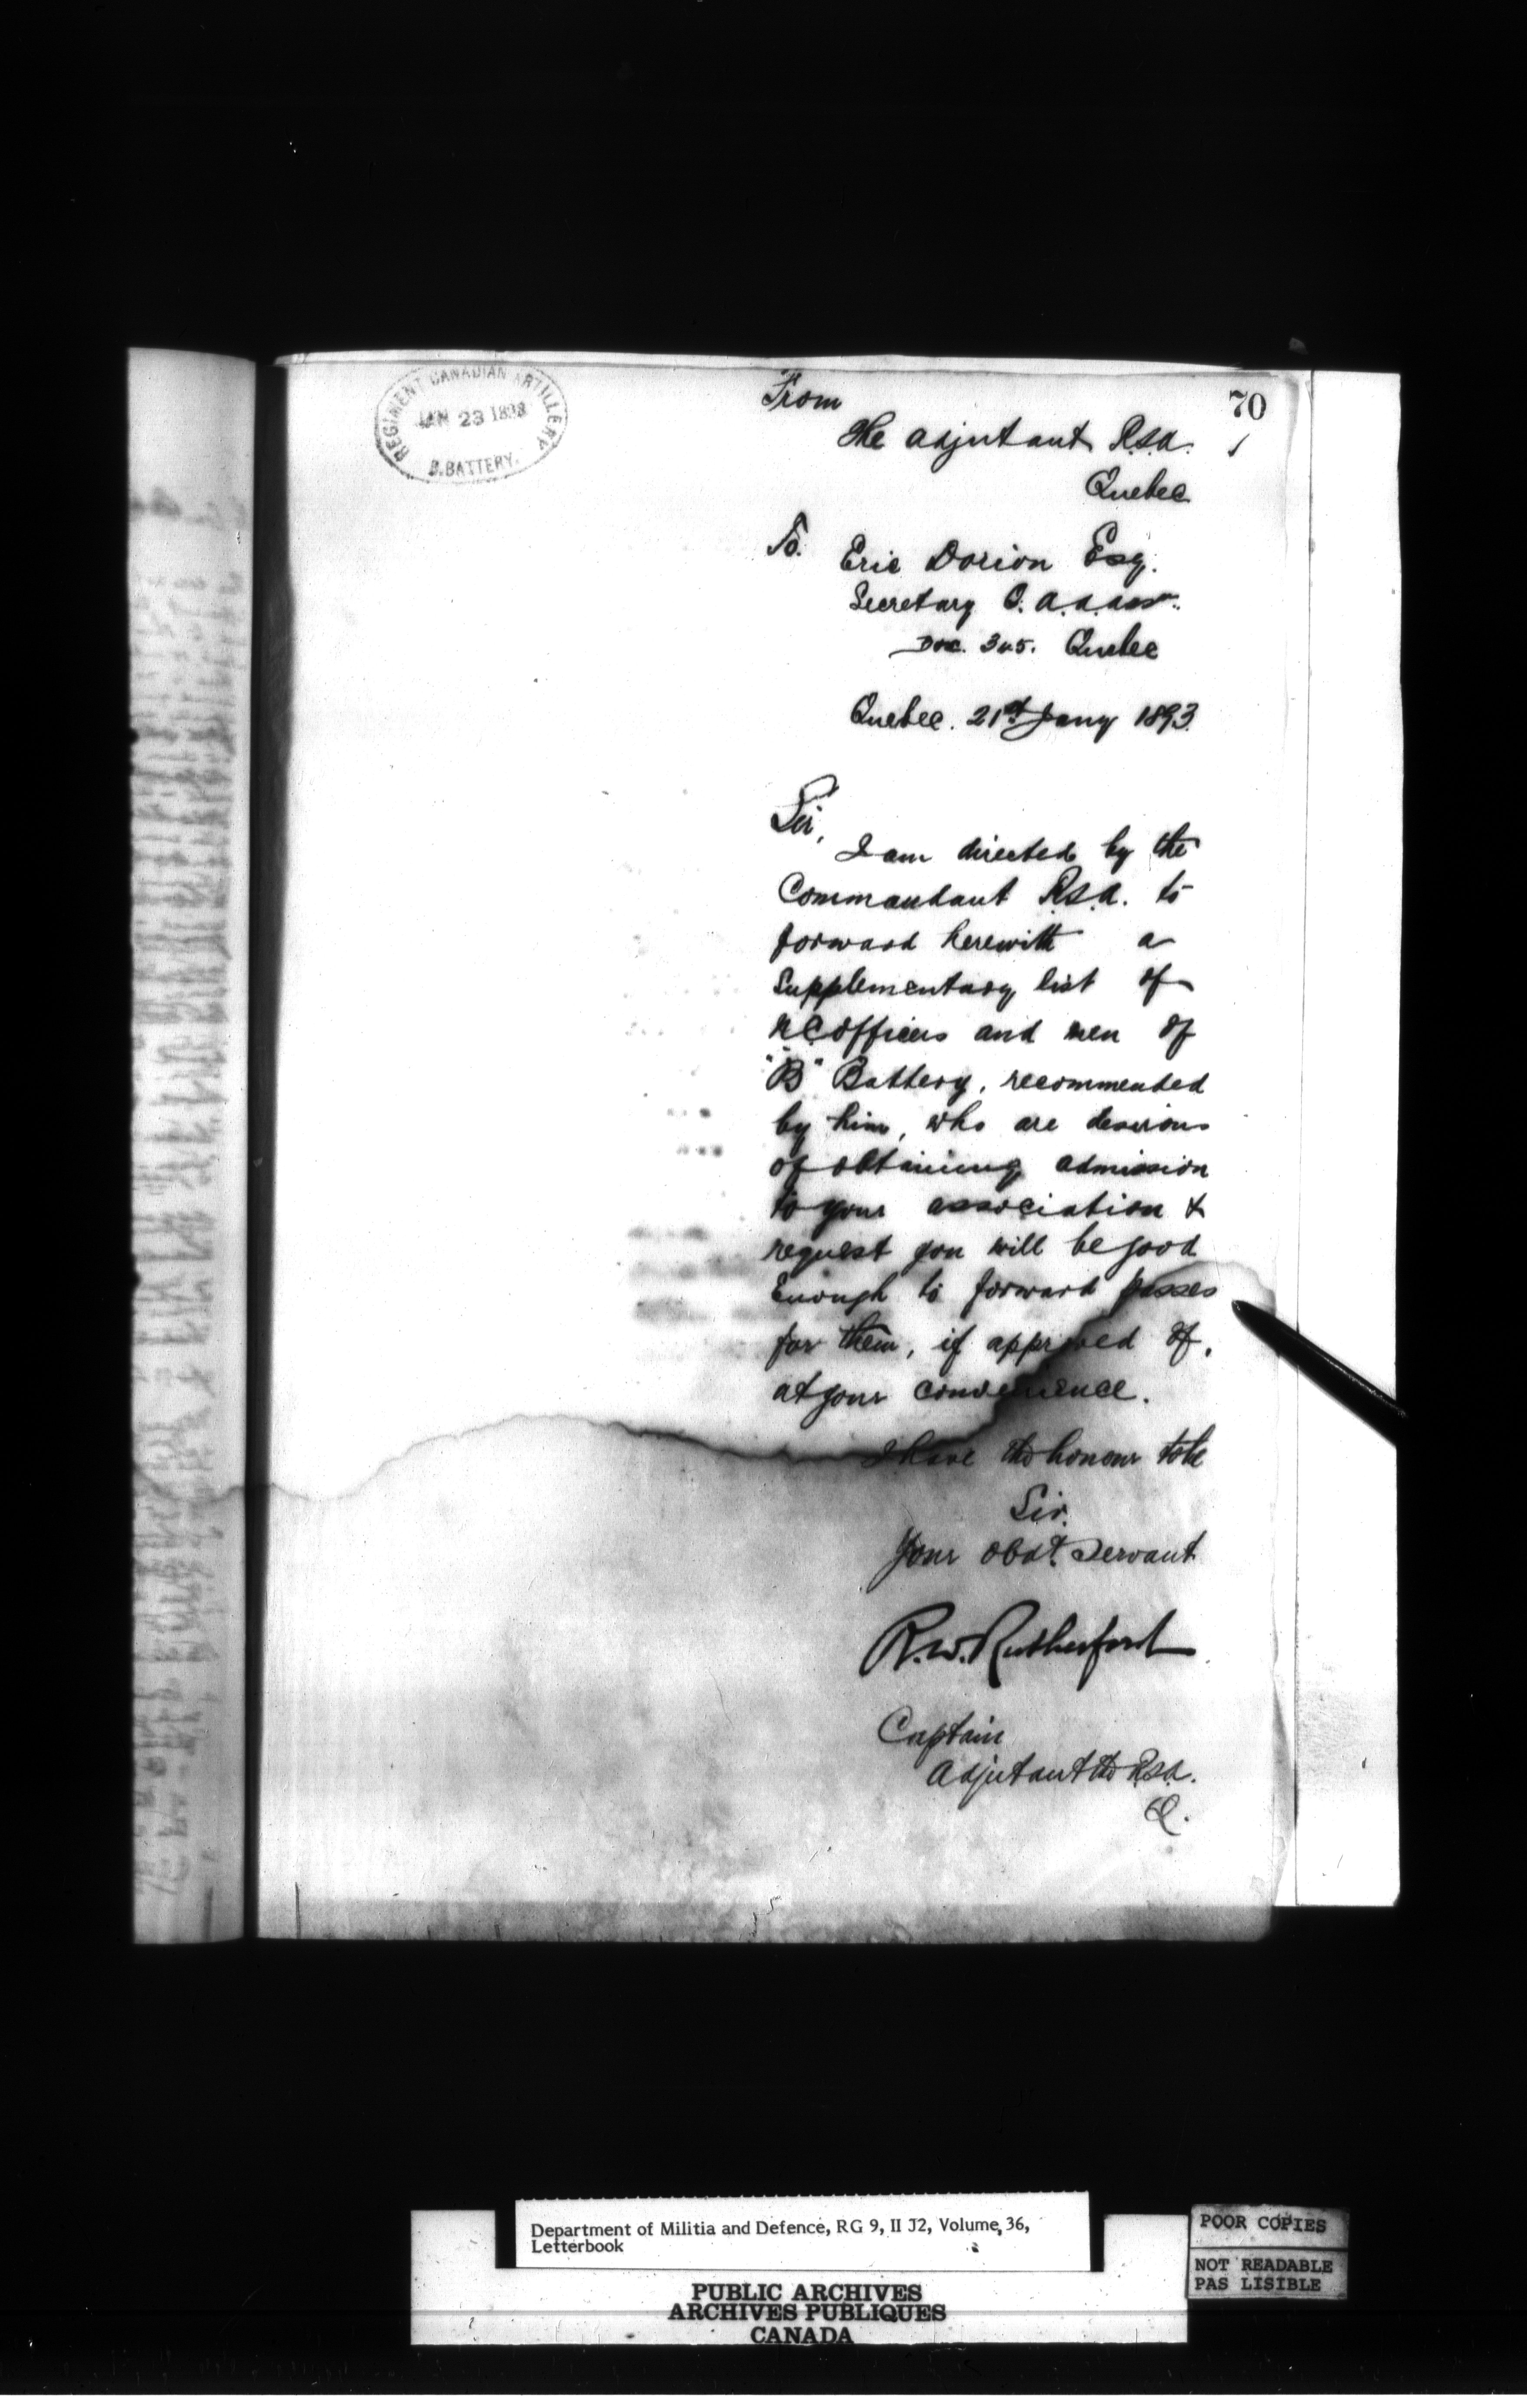 REGIMENT CANADIAN ARTILLERY
JAN 23 1893
B. BATTERY.
70
From
The Adjutant R.S.A.
Quebec
To.
Eric Dorion Esq.
Secretary Q. A. A. Assn.
Box. 345. Quebec
Quebec. 21st Jany 1893
Sir,
I am directed by the
Commandant R.S.A. to
forward herewith a
Supplementary list of
N.C. Officers and men of
"B" Battery, recommended
by him, who are desirous
of obtaining admission
to your association &
request you will be good
Enough to forward passes
for them, if approved of,
at your convenience.
I have the honour to be
Sir.
Your obdt. Servant
R.W. Rutherford
Captain
Adjutant the R.S.A.
Q.
Department of Militia and Defence, RG 9, II J2, Volume, 36,
Letterbook
POOR COPIES
NOT READABLE
PAS LISIBLE
PUBLIC ARCHIVES
ARCHIVES PUBLIQUES
CANADA